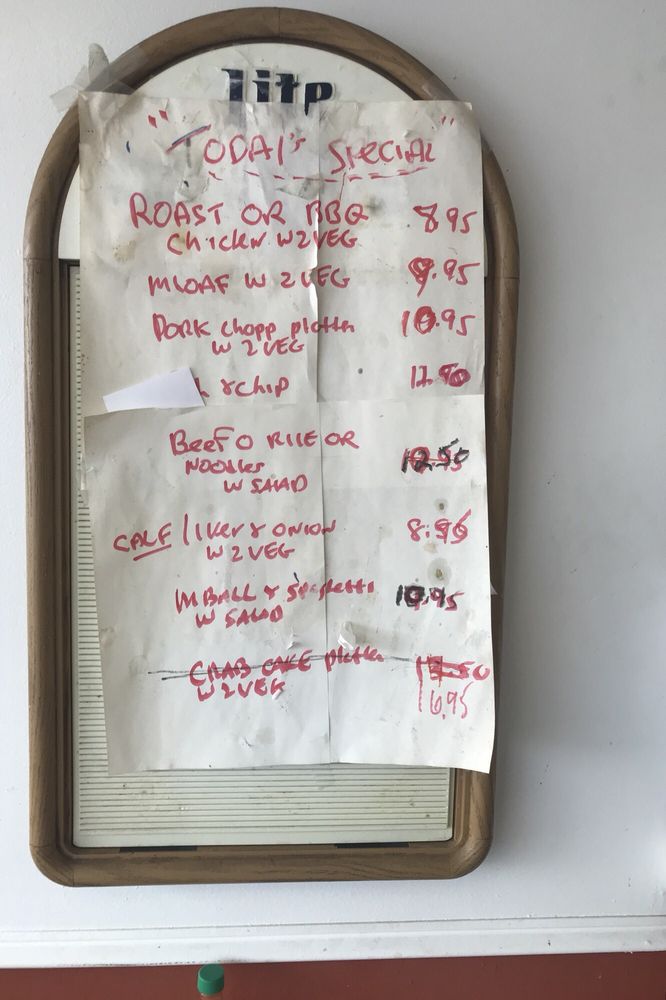 lite
"TODAY's SPECIAL"
ROAST OR BBQ 8.95
Chicken W2VEG
MLOAF W 2VEG 9.95
PORK chopp platter 10.95
W 2VEG
& chip
BeeF O RICE OR
NOODles 12.50
W SALAD
CALF liver & ONION 8.95
W 2VEG
MBALL & Spaghetti 10.95
W SALAD
CRAB CAKE platter
W 2VEG 16.95